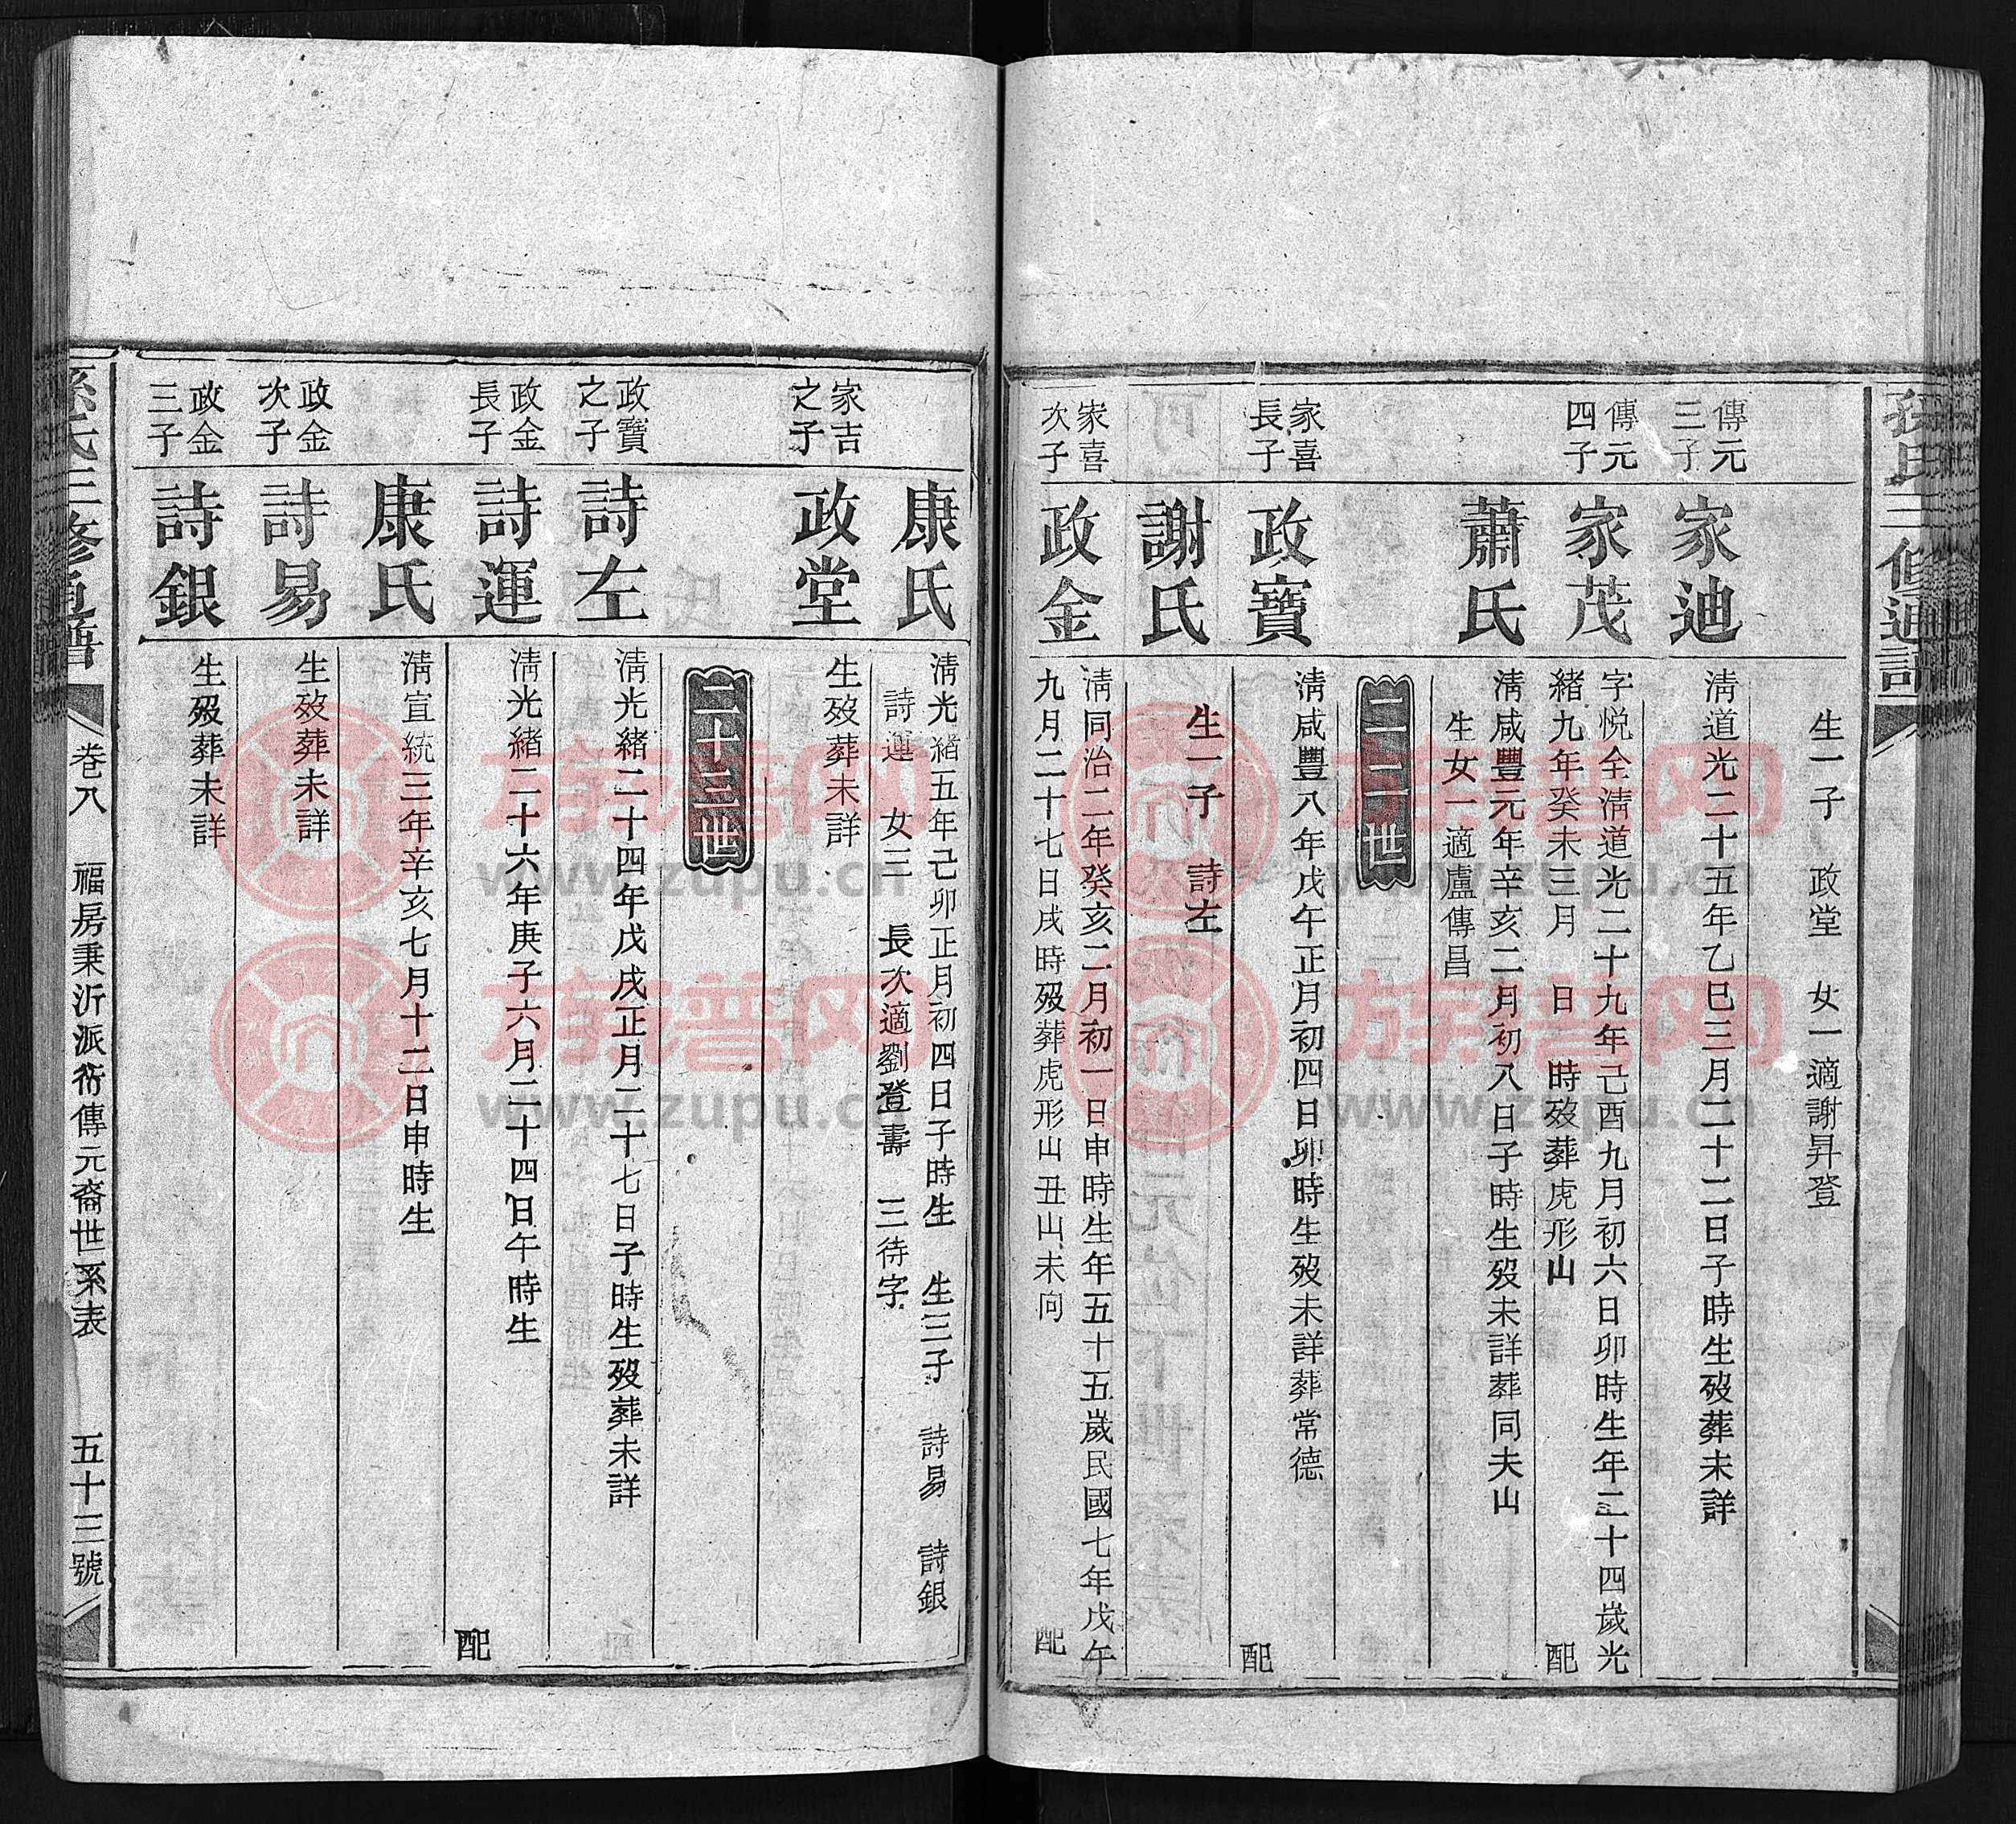 孫氏三修通譜
生一子　政堂　女一適謝昇登
傳元三子
家迪
淸道光二十五年乙巳三月二十二日子時生歿葬未詳
傳元四子
家茂
字悅全淸道光二十九年己酉九月初六日卯時生年三十四歲光
緒九年癸未三月　日　時歿葬虎形山　配
蕭氏
淸咸豐元年辛亥二月初八日子時生歿未詳葬同夫山
生女一適盧傳昌
二二世
家喜長子
政寶
淸咸豐八年戊午正月初四日卯時生歿未詳葬常德
配
謝氏
生一子　詩左
家喜次子
政金
淸同治二年癸亥二月初一日申時生年五十五歲民國七年戊午
九月二十七日戌時歿葬虎形山丑山未向　配
康氏
淸光緒五年己卯正月初四日子時生　生三子　詩易　詩銀
詩運　女三　長次適劉登壽　三待字
家吉之子
政堂
生歿葬未詳
二十三世
政寶之子
詩左
淸光緒二十四年戊戌正月二十七日子時生歿葬未詳
政金長子
詩運
淸光緒二十六年庚子六月二十四日午時生
配
康氏
淸宣統三年辛亥七月十二日申時生
政金次子
詩易
生歿葬未詳
政金三子
詩銀
生歿葬未詳
孫氏三修通譜
卷八　福房秉沂派衍傳元裔世系表　五十三號
族譜网
www.zupu.cn
族譜网
www.zupu.cn
族譜网
www.zupu.cn
族譜网
www.zupu.cn